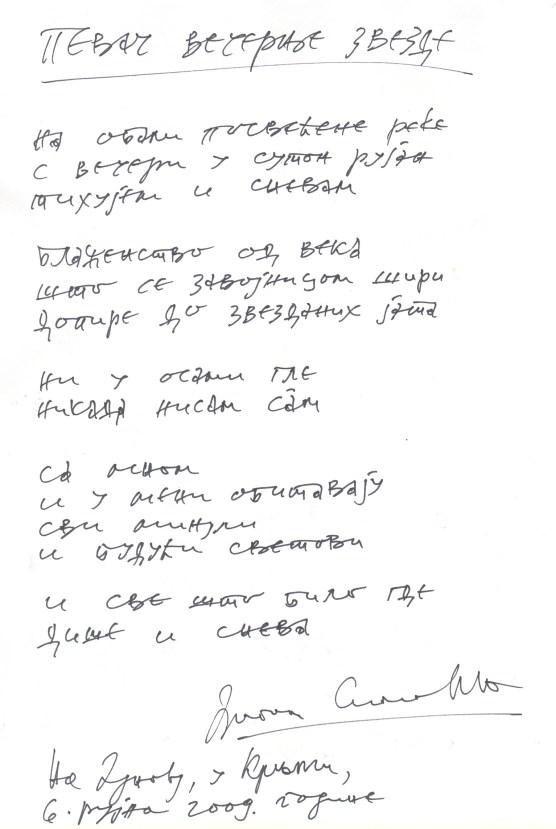 ПЕВАЧ ВЕЧЕРЊЕ ЗВЕЗДЕ
На обали посвећене реке
с вечери у сутон рујан
тихујем и сневам
блаженство од века
што се завојницом шири
допире до звезданих јата
ни у осами гле
никада нисам сâм
са мном
и у мени обитавају
сви минули
и будући светови
и све што било где
дише и снева
На Дунаву, у
6. рујна 2009. године